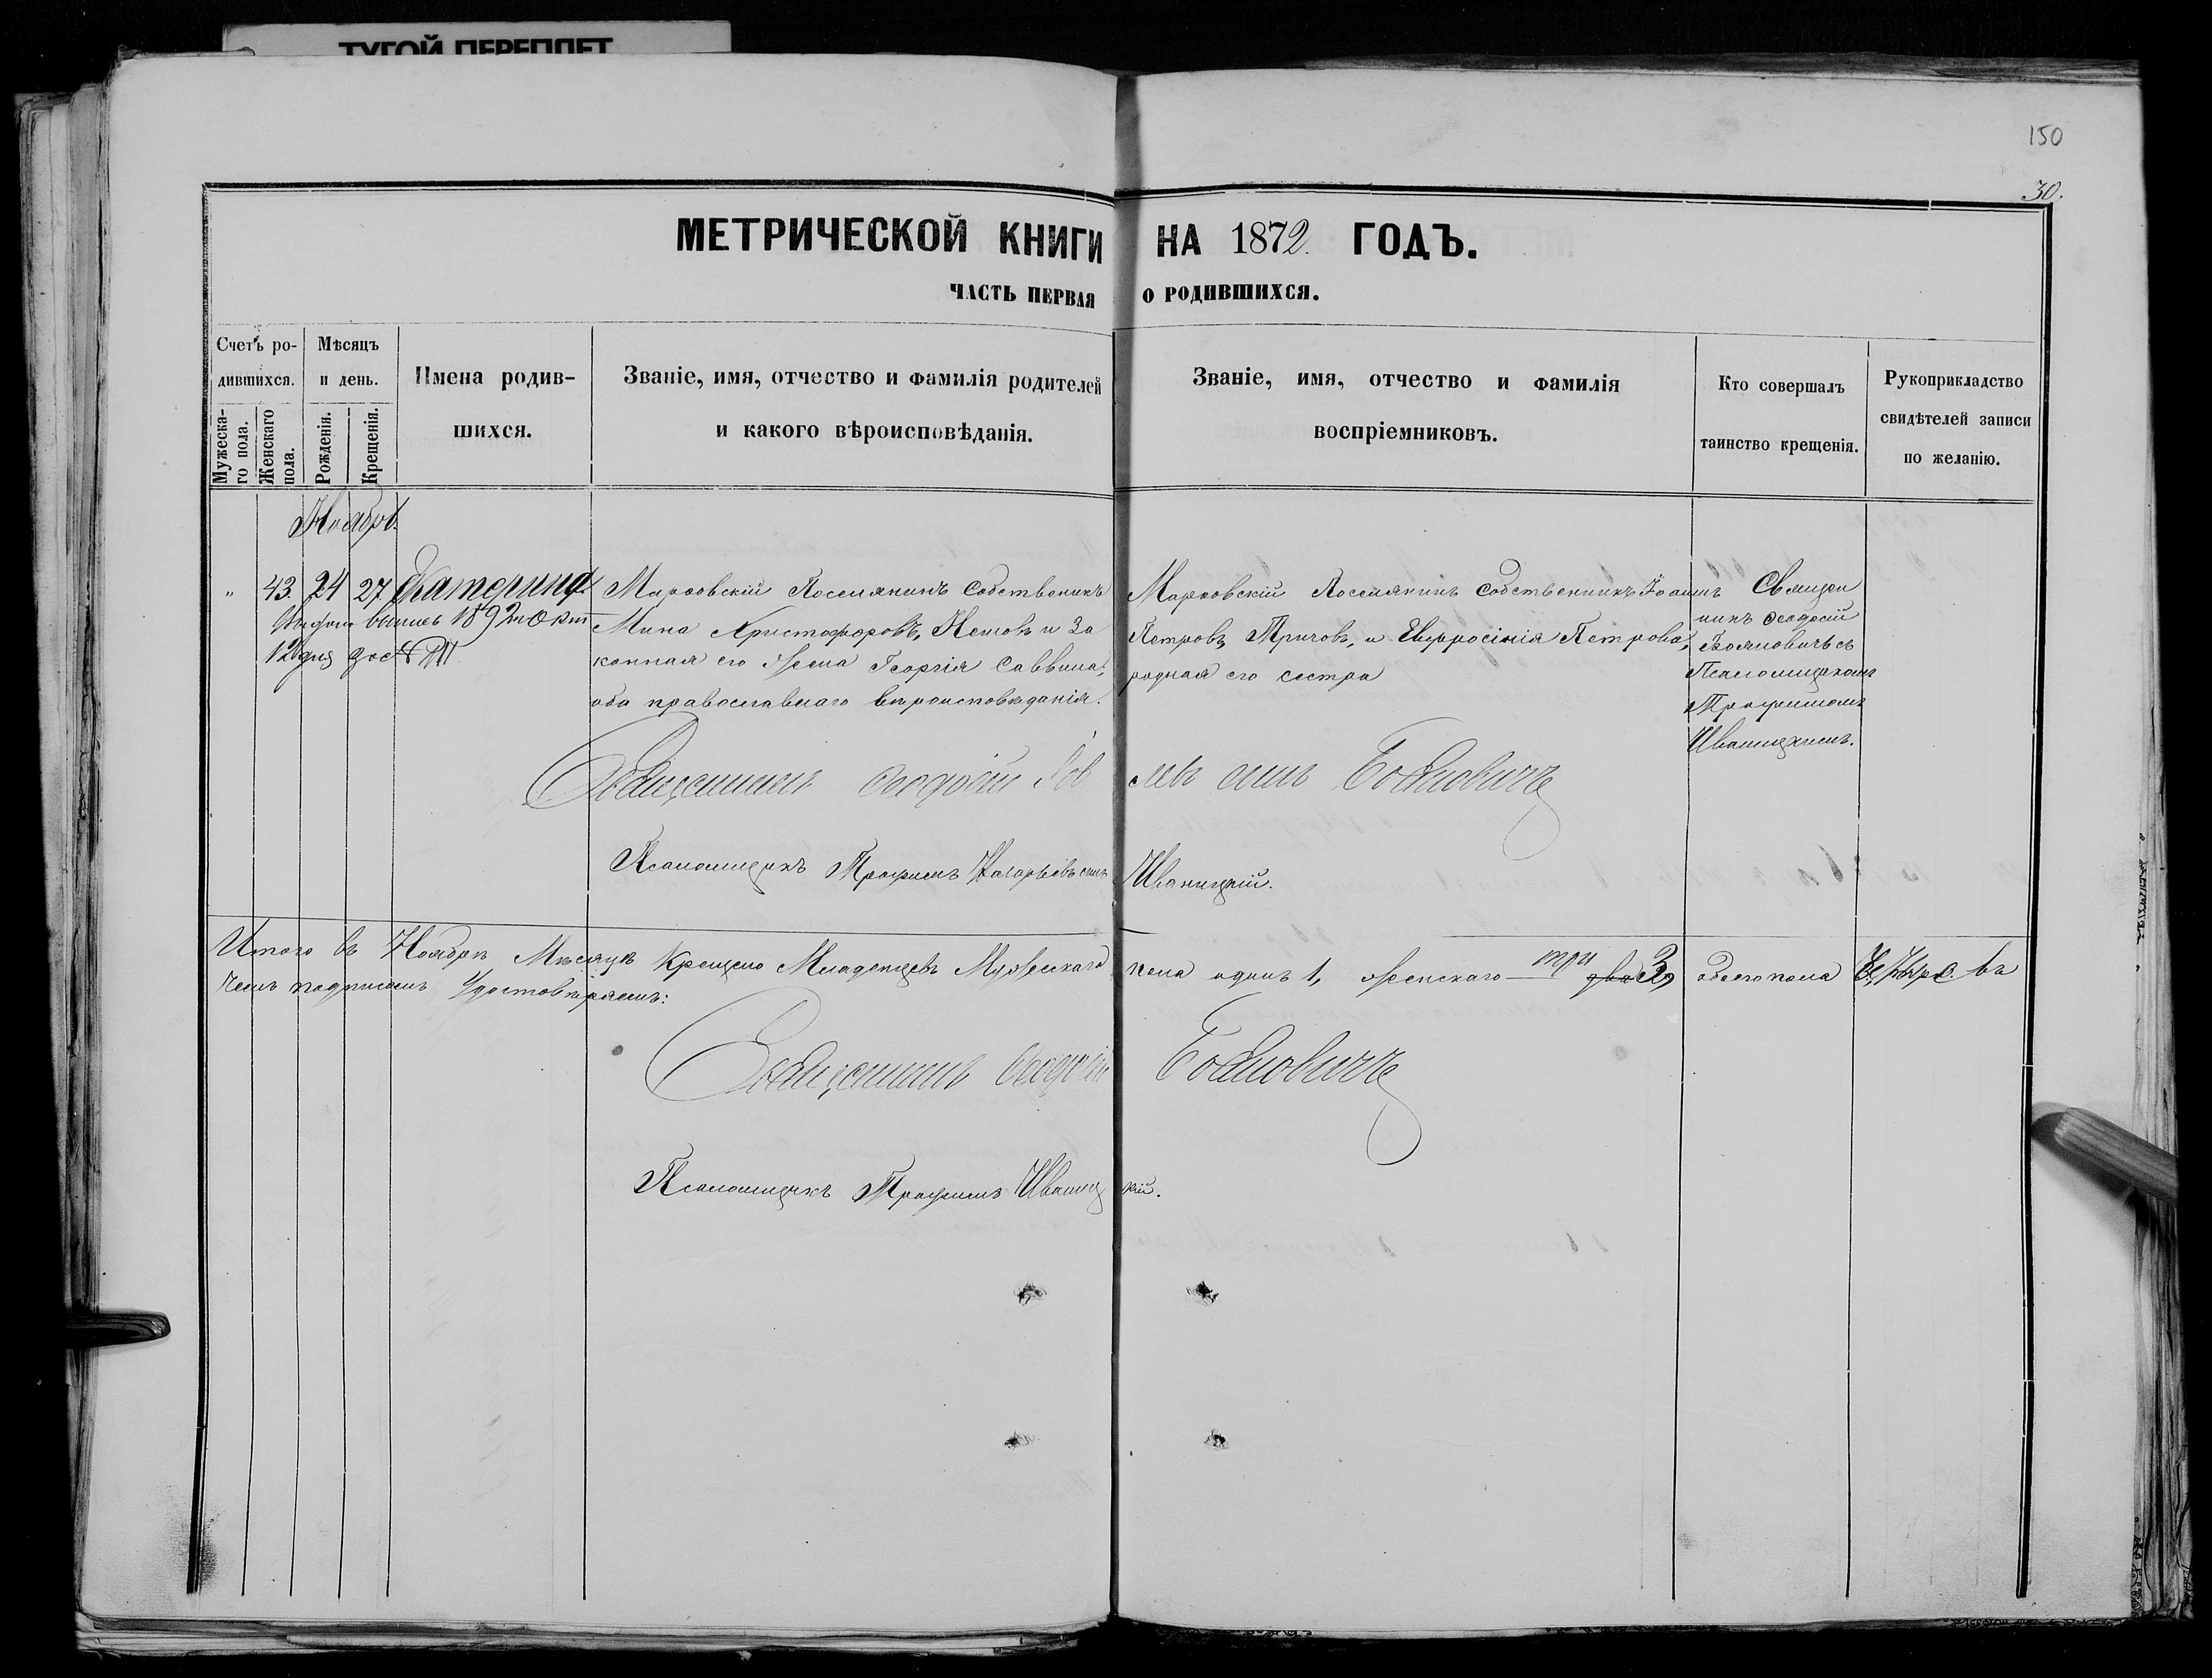 ТУГОЙ ПЕРЕПЛЕТ
150
30.
МЕТРИЧЕСКОЙ КНИГИ НА 1872 ГОДЪ.
ЧАСТЬ ПЕРВАЯ О РОДИВШИХСЯ.
Счетъ родившихся.
Мужескаго пола.
Женскаго пола.
Мѣсяцъ и день.
Рожденія.
Крещенія.
Имена родив-
шихся.
Званіе, имя, отчество и фамилія родителей
и какого вѣроисповѣданія.
Званіе, имя, отчество и фамилія
воспріемниковъ.
Кто совершалъ
таинство крещенія.
Рукоприкладство
свидѣтелей записи
по желанію.
Ноябрь
" 43. 24 27 Екатерина
выпись 1892 Окт
12 дня
Поселянинъ Собственникъ
Мина Христофоровъ, и За
конная его жена Георгія Саввина,
оба православнаго вѣроисповѣданія.
Поселянинъ Собственникъ Іоаннъ
Петровъ и Евфросінія Петрова,
родная его сестра
Священ
никъ Ѳеодосій
Бояновичъ съ
Псаломщикомъ
Трофимомъ
Иваницкимъ.
Священникъ Ѳеодосій сынъ Бояновичъ
Псаломщикъ Трофимъ Иваницкій.
Итого въ Ноябрѣ Мѣсяцѣ Крещено Младенцевъ Мужескаго пола одинъ 1, женскаго три 3, обоего пола Четыре. въ
чемъ подписомъ удостовѣряемъ:
Священникъ Ѳеодосій Бояновичъ
Псаломщикъ Трофимъ Иваницкій.